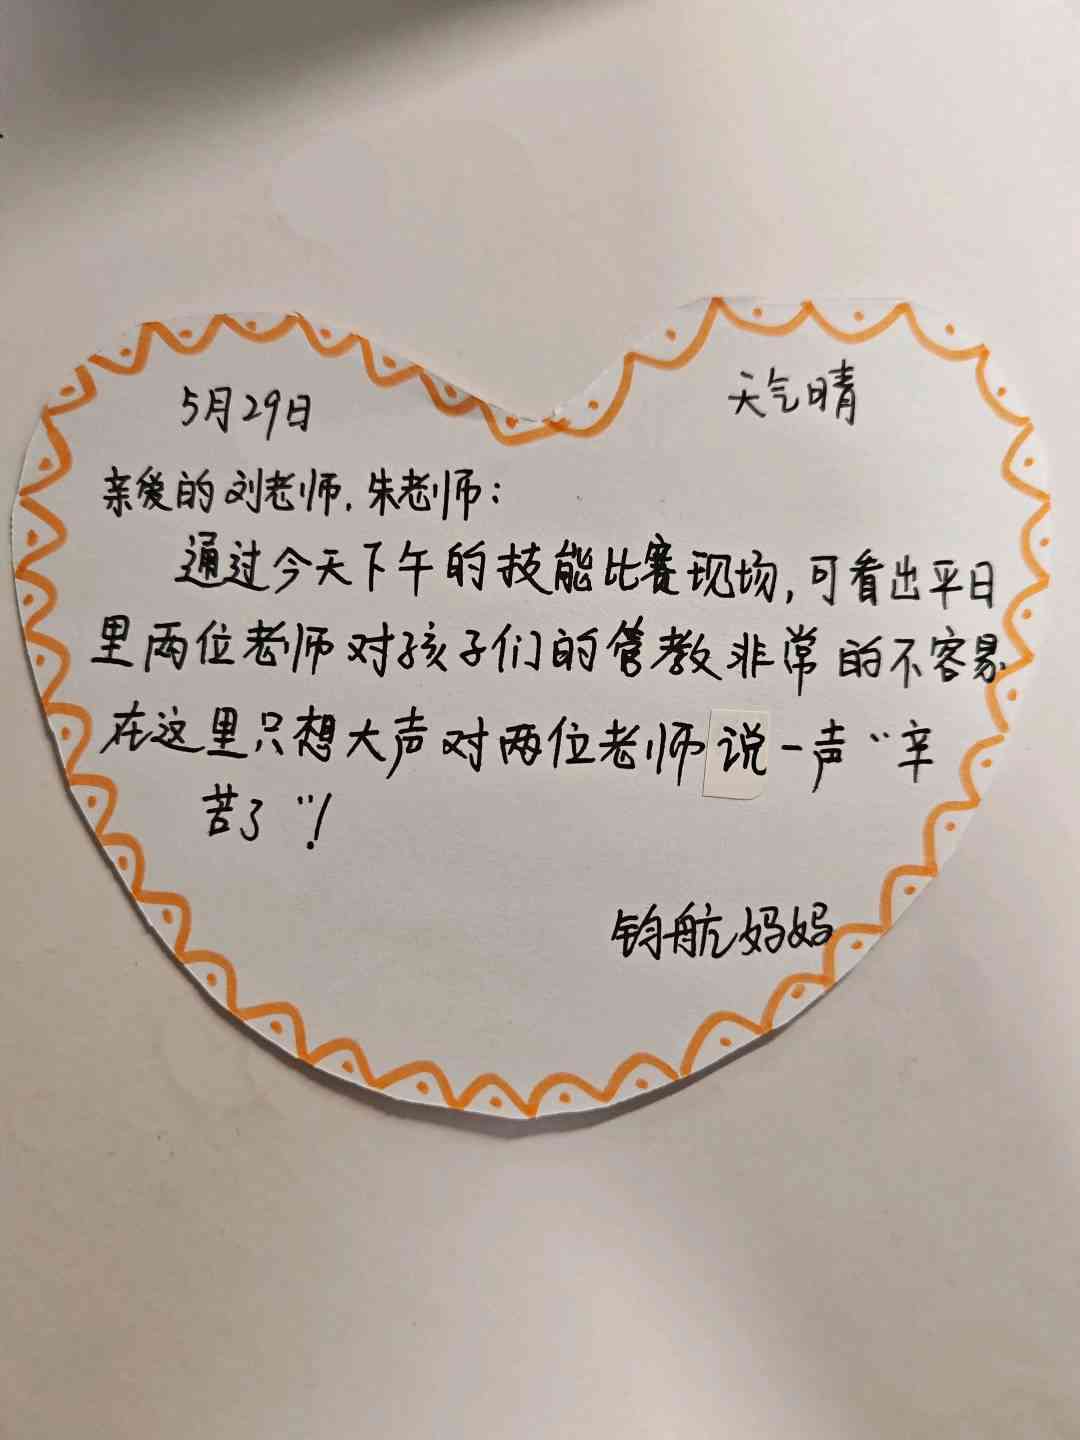 5月29日 天气晴
亲爱的刘老师,朱老师:
通过今天下午的技能比赛现场,可看出平日
里两位老师对孩子们的管教非常的不容易.
在这里只想大声对两位老师说一声“辛
苦了”!
钧航妈妈